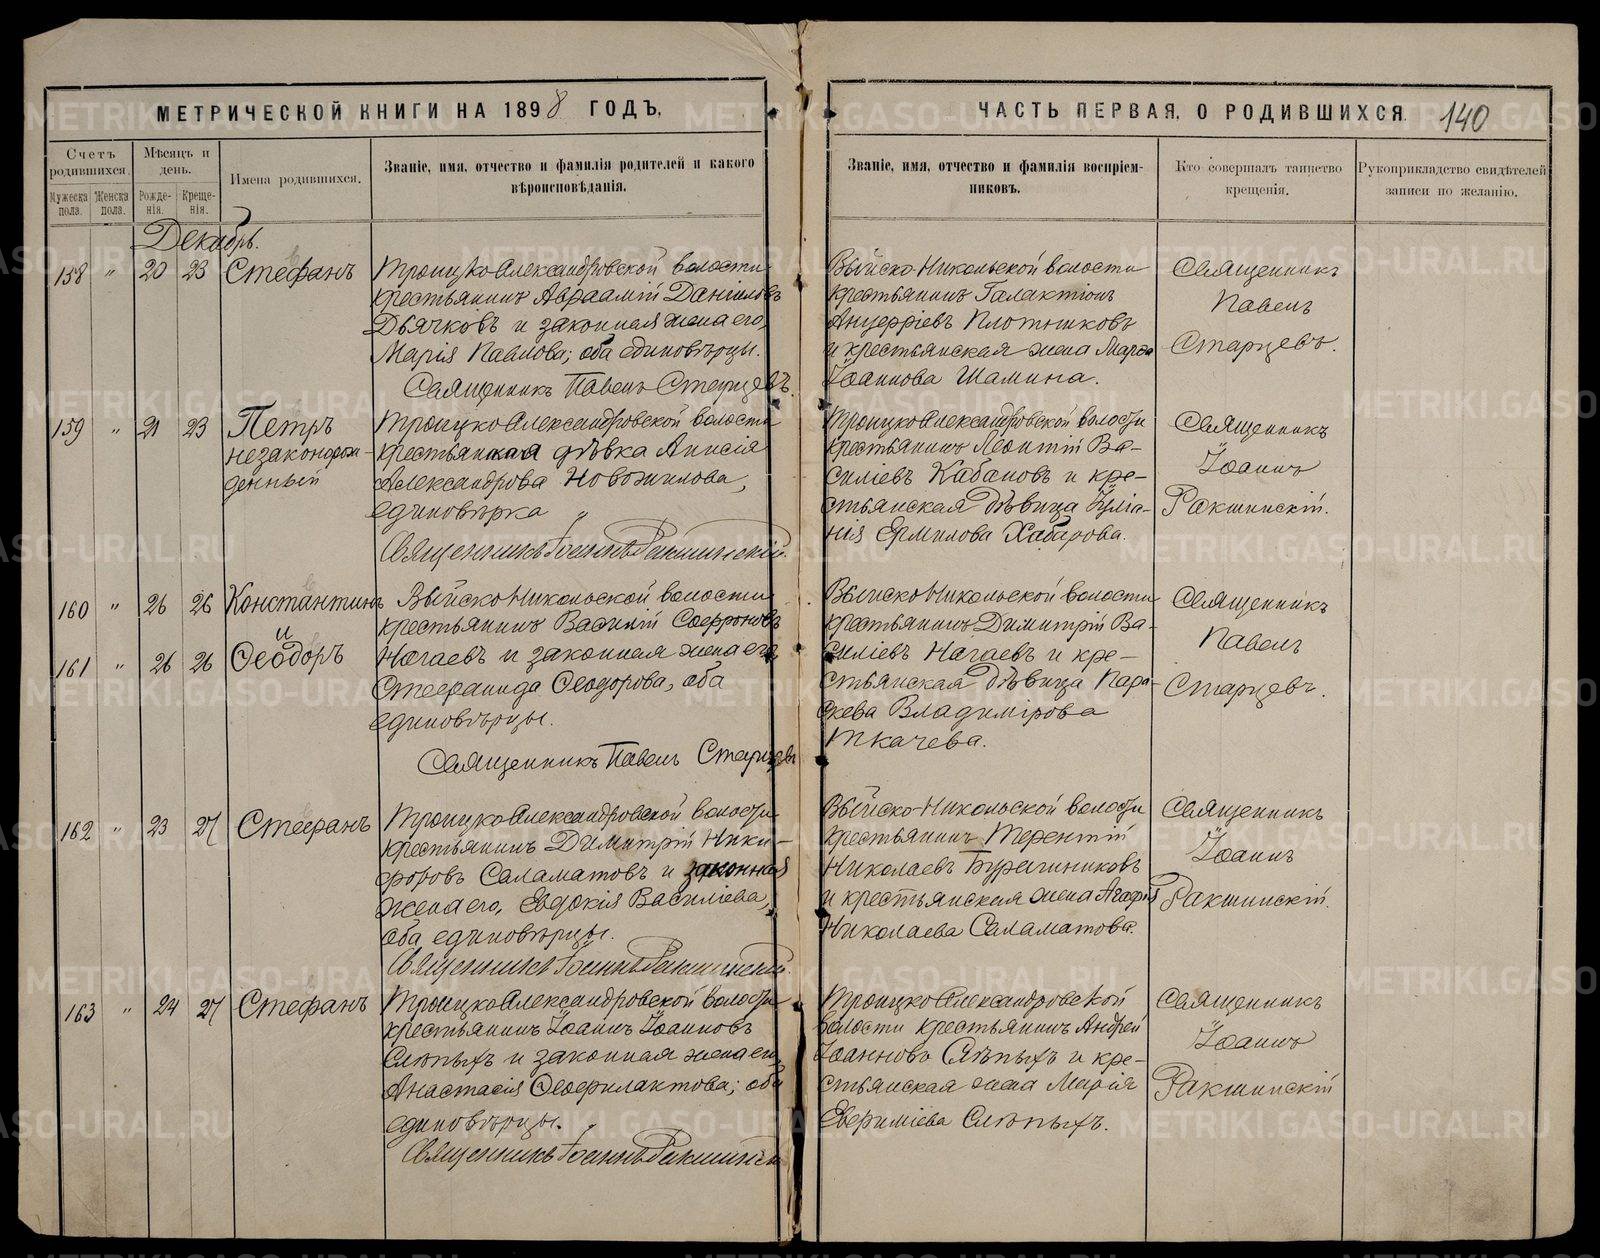 МЕТРИЧЕСКОЙ КНИГИ НА 1898 ГОДЪ,
Счетъ родившихся.
Мѣсяцъ и день.
Имена родившихся.
Званіе, имя, отчество и фамилія родителей и какого
вѣроисповѣданія.
Мужеска пола.
Женска пола.
Рожде-
нія.
Креще-
нія.
Декабрь.
158 " 20 23 Стефанъ
Троицко Александровской волости
крестьянинъ Авраамій Даніиловъ
Дьячковъ и законная жена его,
Марія Павлова; оба единовѣрцы.
Священникъ Павелъ Старцевъ.
159 " 21 23 Петръ
незаконорож-
денный
Троицко Александровской волости
крестьянская дѣвка Анисія
Александрова Новожилова,
единовѣрка "
Священникъ Іоаннъ Ракшинскій.
160 " 26 26 Константинъ
и
161 " 26 26 Ѳеодоръ
Выйско Никольской волости
крестьянинъ Василій Софроновъ
Нагаевъ и законная жена его
Стефанида Ѳеодорова, оба
единовѣрцы.
Священникъ Павелъ Старцевъ
162 " 23 27 Стефанъ
Троицко Александровской волости
крестьянинъ Димитрій Ники-
форовъ Саламатовъ и законная
жена его, Евдокія Василіева,
оба единовѣрцы.
Священникъ Іоаннъ Ракшинскій.
163 " 24 27 Стефанъ
Троицко Александровской волости
крестьянинъ Іоаннъ Іоанновъ
Слѣпыхъ и законная жена его
Анастасія Ѳеофилактова; оба
единовѣрцы.
Священникъ Іоаннъ Ракшинскій
ЧАСТЬ ПЕРВАЯ, О РОДИВШИХСЯ. 140
Званіе, имя, отчество и фамилія воспріем-
никовъ.
Кто совершалъ таинство
крещенія.
Рукоприкладство свидѣтелей
записи по желанію.
Выйско-Никольской волости
крестьянинъ Галактіонъ
Плотниковъ
и крестьянская жена Марѳа
Іоаннова Шамина.
Священникъ
Павелъ
Старцевъ.
Троицко Александровской волости
крестьянинъ Леонтій Ва-
силіевъ Кабановъ и кре-
стьянская дѣвица Іуліа-
нія Ермилова Хабарова.
Священникъ
Іоаннъ
Ракшинскій.
Выйско Никольской волости
крестьянинъ Димитрій Ва-
силіевъ Нагаевъ и кре-
стьянская дѣвица Пара-
скева Владимірова
Ткачева.
Священникъ
Павелъ
Старцевъ.
Выйско-Никольской волости
крестьянинъ Терентій
Николаевъ
и крестьянская жена Агафія
Николаева Саламатова.
Священникъ
Іоаннъ
Ракшинскій.
Троицко Александровской
волости крестьянинъ Андрей
Іоанновъ Слѣпыхъ и кре-
стьянская жена Марія
Евфиміева Слѣпыхъ.
Священникъ
Іоаннъ
Ракшинскій
METRIKI.GASO-URAL.RU